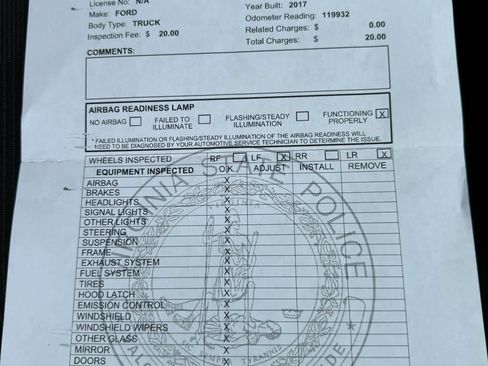 License No: N/A
Make: FORD
Body Type: TRUCK
Inspection Fee: $ 20.00
Year Built: 2017
Odometer Reading: 119932
Related Charges: $ 0.00
Total Charges: $ 20.00
COMMENTS:
AIRBAG READINESS LAMP
NO AIRBAG FAILED TO ILLUMINATE FLASHING/STEADY ILLUMINATION FUNCTIONING PROPERLY X
* FAILED ILLUMINATION OR FLASHING/STEADY ILLUMINATION OF THE AIRBAG READINESS WILL
NEED TO BE DIAGNOSED BY YOUR AUTOMOTIVE SERVICE TECHNICIAN TO DETERMINE THE ISSUE.
WHEELS INSPECTED RF LF X RR LR X
EQUIPMENT INSPECTED O.K. ADJUST INSTALL REMOVE
AIRBAG X
BRAKES X
HEADLIGHTS X
SIGNAL LIGHTS X
OTHER LIGHTS X
STEERING X
SUSPENSION X
FRAME X
EXHAUST SYSTEM X
FUEL SYSTEM X
TIRES X
HOOD LATCH X
EMISSION CONTROL X
WINDSHIELD X
WINDSHIELD WIPERS X
OTHER GLASS X
MIRROR X
DOORS X
STATE POLICE
SIC SEMPER TYRANNIS